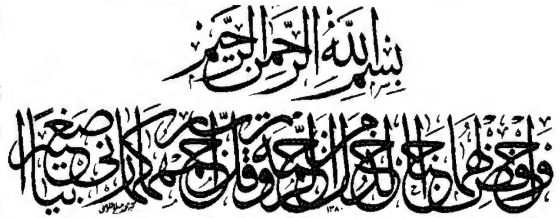 بسم الله الرحمن الرحيم
واخفض لهما جناح الذل من الرحمة وقل رب ارحمهما كما ربياني صغيرا
١٣٨٠